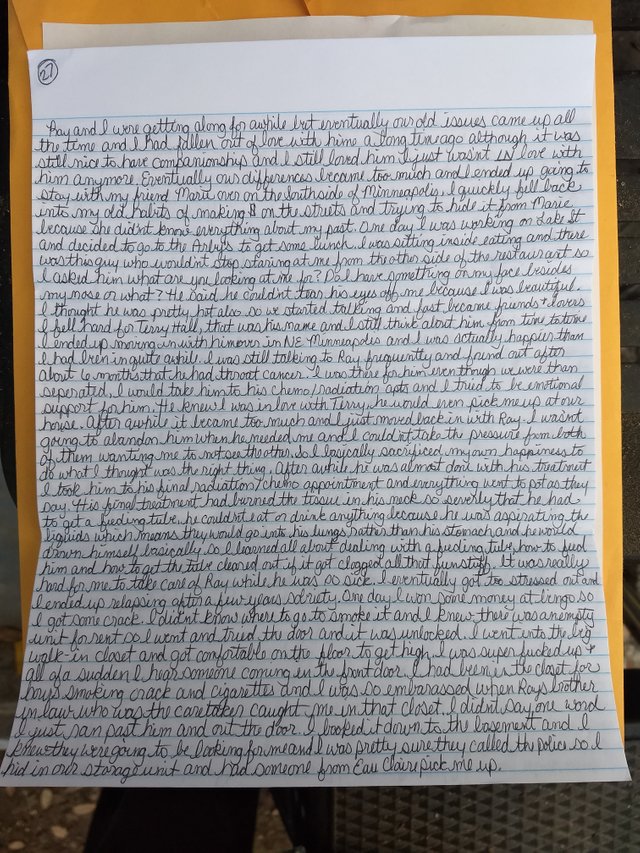 27
Ray and I were getting along for awhile but eventually our old issues came up all
the time and I had fallen out of love with him a long time ago although it was
still nice to have companionship and I still loved him I just wasn't IN love with
him anymore. Eventually our differences became too much and I ended up going to
stay with my friend Marie over on the Southside of Minneapolis. I quickly fell back
into my old habits of making $ on the streets and trying to hide it from Marie
because she didn't know everything about my past. One day I was working on Lake St
and decided to go to the Arby's to get some lunch. I was sitting inside eating and there
was this guy who wouldn't stop staring at me from the other side of the restaurant so
I asked him what are you looking at me for? Do I have something on my face besides
my nose or what? He said he couldn't tear his eyes off me because I was beautiful.
I thought he was pretty hot also so we started talking and fast became friends + lovers
I fell hard for Terry Hall, that was his name and I still think about him from time to time
I ended up moving in with him over in NE Minneapolis and I was actually happier than
I had been in quite awhile. I was still talking to Ray frequently and found out after
about 6 months that he had throat cancer. I was there for him even though we were than
seperated, I would take him to his chemo/radiation apts and I tried to be emotional
support for him. He knew I was in love with Terry, he would even pick me up at our
house. After awhile it became too much and I just moved back in with Ray. I wasn't
going to abandon him when he needed me and I couldn't take the pressure from both
of them wanting me to not see the other. So I basically sacrificed my own happiness to
do what I thought was the right thing. After awhile he was almost done with his treatment
I took him to his final radiation/chemo appointment and everything went to pot as they
say. His final treatment had burned the tissue in his neck so severly that he had
to get a feeding tube, he couldn't eat or drink anything because he was aspirating the
liquids which means they would go into his lungs rather than his stomach and he would
drown himself basically so I learned all about dealing with a feeding tube, how to feed
him and how to get the tube cleared out if it got clogged all that fun stuff. It was really
hard for me to take care of Ray while he was so sick. I eventually got too stressed out and
I ended up relapsing after a few years sobriety. One day I won some money at bingo so
I got some crack. I didn't know where to go to smoke it and I knew there was an empty
unit for rent so I went and tried the door and it was unlocked. I went into the big
walk-in closet and got comfortable on the floor to get high, I was super fucked up +
all of a sudden I hear someone coming in the front door. I had been in the closet for
hours smoking crack and cigarettes and I was so embarassed when Rays brother
in law who was the caretaker caught me in that closet. I didn't say one word
I just ran past him and out the door. I booked it down to the basement and I
knew they were going to be looking for me and I was pretty sure they called the police so I
hid in our storage unit and had someone from Eau Claire pick me up.